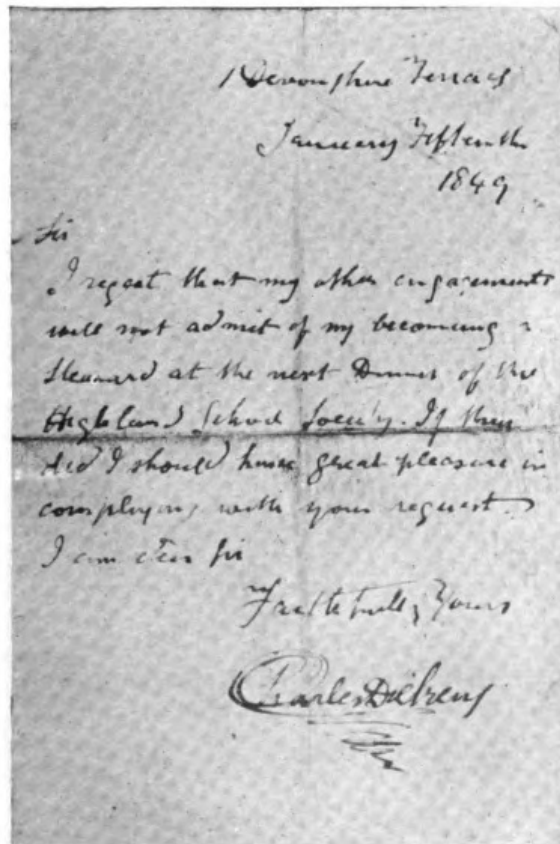 1 Devonshire Terrace
January Fifteenth
1849
Sir
I regret that my other engagements
will not admit of my becoming a
Steward at the next Dinner of the
Highland School Society. If they
did I should have great pleasure in
complying with your request.
I am Dear Sir
Faithfully Yours
Charles Dickens